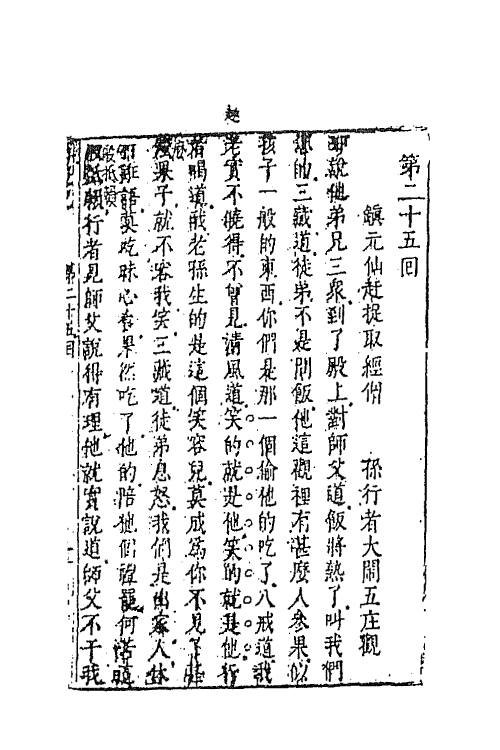 趣
第二十五回
鎮元仙赶捉取經僧　孫行者大鬧五庄觀
却說他弟兄三衆到了殿上對師父道飯將熟了叫我們
怎的三藏道徒弟不是問飯他這觀裡有甚麽人參果似
孩子一般的東西你們是那一個偷他的吃了八戒道我
老實不曉得不曾見清風道笑的就是他笑的就是他行
者喝道我老孫生的是這個笑容兒莫成爲你不見了甚
麽果子就不容我笑三藏道徒弟息怒我們是出家人休
打誑語莫吃昧心食果然吃了他的陪他個禮罷何苦這
般抵賴行者見師父說得有理他就實說道師父不干我
般抵賴
第二十五回